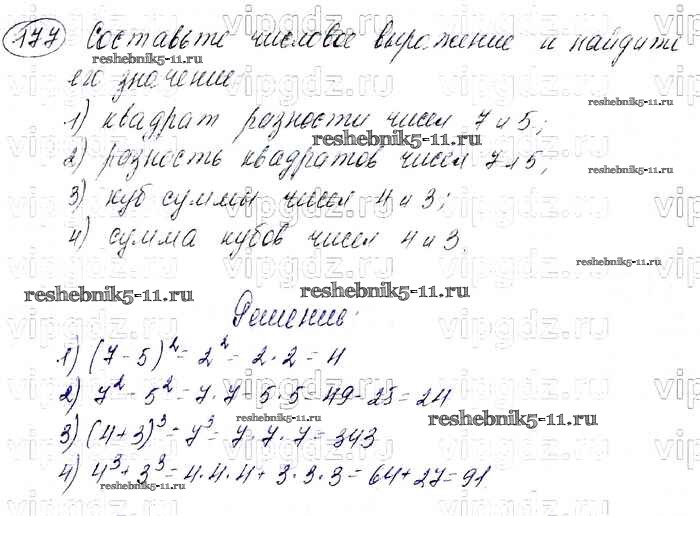 177 Составьте числовое выражение и найдите
его значение
1) квадрат разности чисел 7 и 5;
2) разность квадратов чисел 7 и 5;
3) куб суммы чисел 4 и 3;
4) сумма кубов чисел 4 и 3.
Решение:
1) (7-5)² = 2² = 2·2 = 4
2) 7² - 5² = 7·7 - 5·5 = 49 - 25 = 24
3) (4+3)³ = 7³ = 7·7·7 = 343
4) 4³ + 3³ = 4·4·4 + 3·3·3 = 64 + 27 = 91
reshebnik5-11.ru
vipgdz.ru